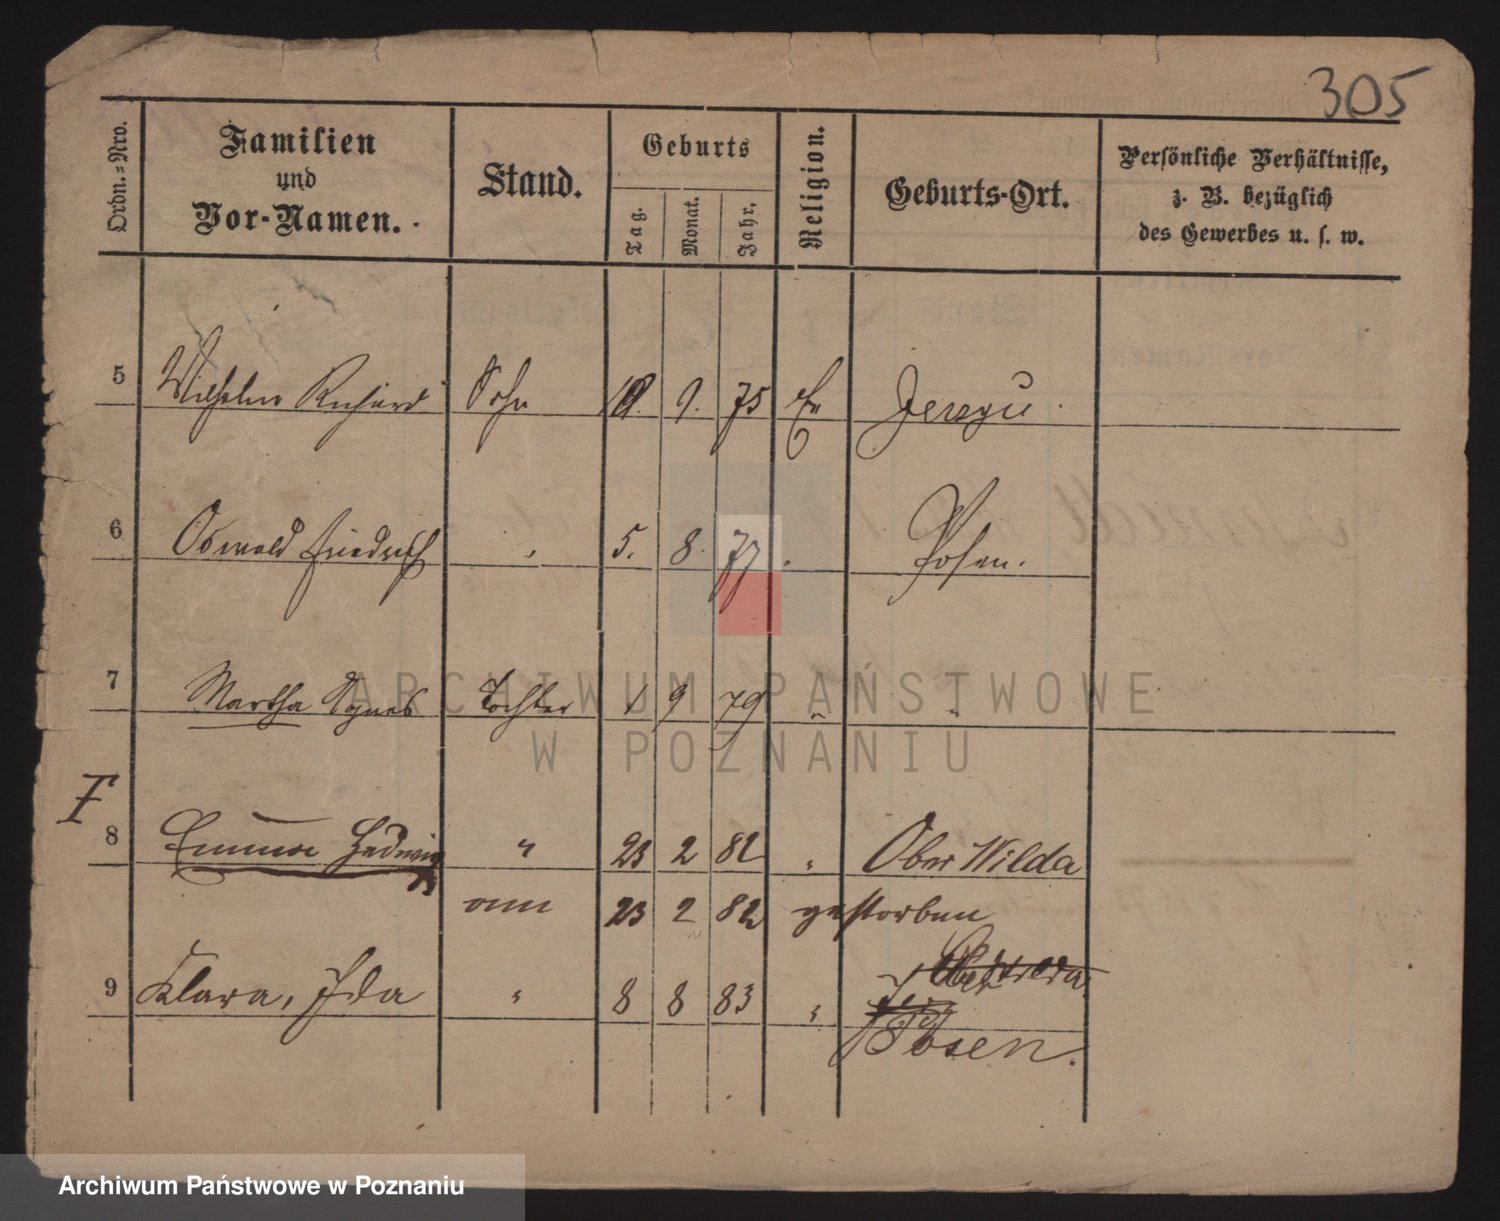 305
Ordn.=Nro.
Familien
und
Vor-Namen.
Stand.
Geburts
Tag.
Monat.
Jahr.
Religion.
Geburts-Ort.
Persönliche Verhältnisse,
z. B. bezüglich
des Gewerbes u. s. w.
5 Wilhelm Richard Sohn 9. 75 Ev
6 Oswald Friedrich " 5. 8. 77 " Posen.
7 Martha Agnes Tochter 1 9 79 " "
F
8 Emma Hedwig " 23 2 82 " Ober Wilda
23 2 82 gestorben
9 Klara, Ida " 8 8 83 "
Posen.
ARCHIWUM PAŃSTWOWE
W POZNANIU
Archiwum Państwowe w Poznaniu